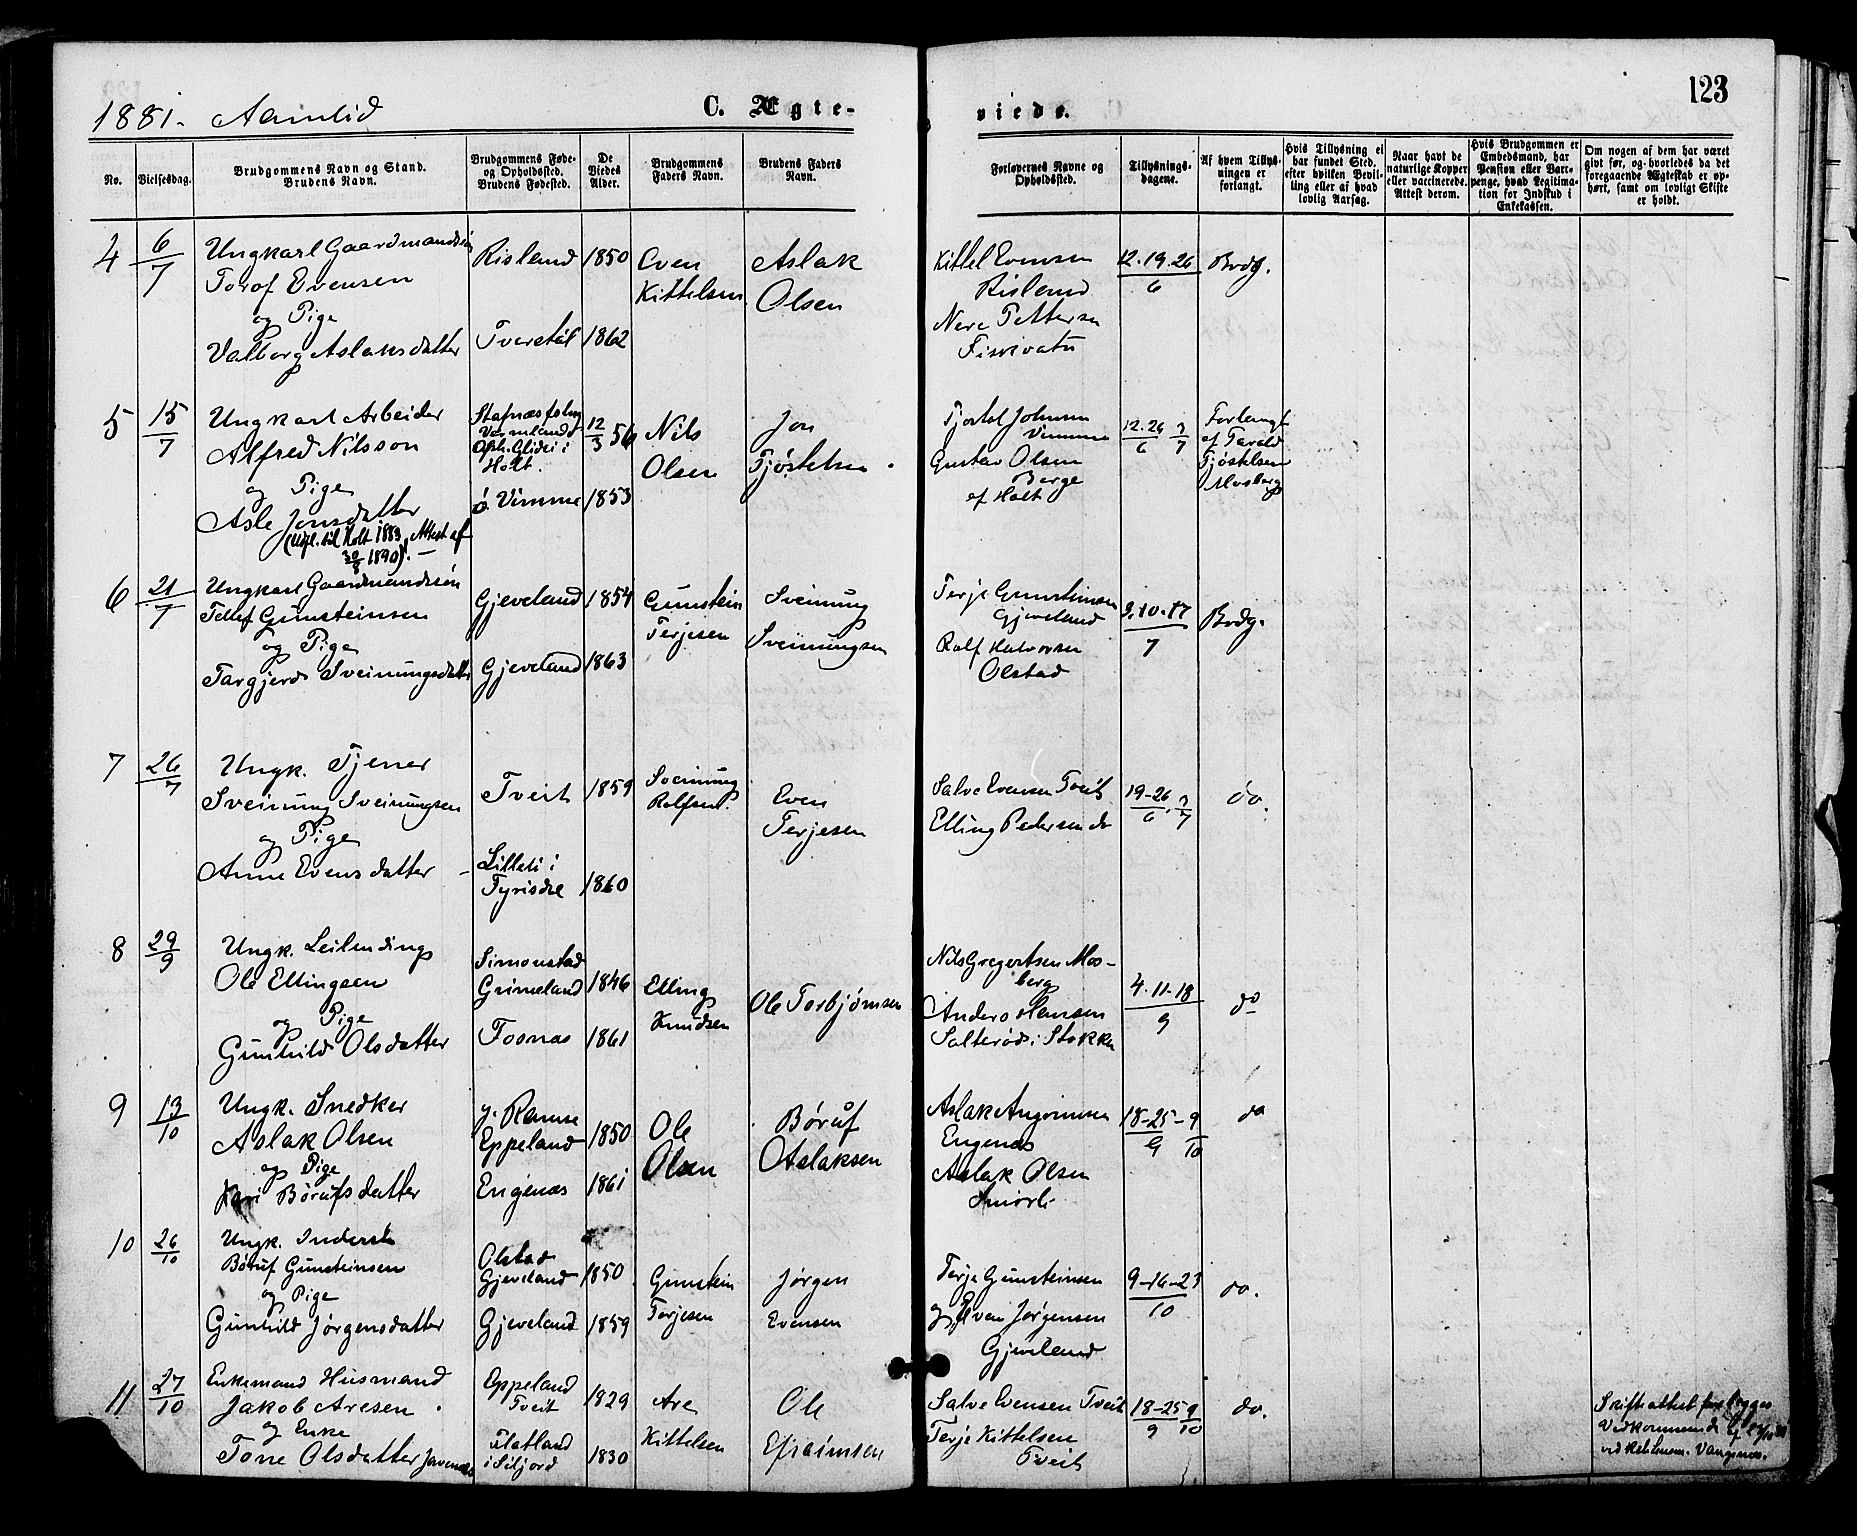 123
1881. Aamlid
C. Ægte-
viede.
No.
Vielsesdag.
Brudgommens Navn og Stand.
Brudens Navn.
Brudgommens Føde-
og Opholdsted.
Brudens Fødested.
De
Viedes
Alder.
Brudgommens
Faders Navn.
Brudens Faders
Navn.
Forlovernes Navne og
Opholdssted.
Tillysnings-
dagene.
Af hvem Tillys-
ningen er
forlangt.
Hvis Tillysning ei
har fundet Sted,
efter hvilken Bevil-
ling eller af hvad
lovlig Aarsag.
Naar havt de
naturlige Kopper
eller vaccinerede.
Attest derom.
Hvis Brudgommen er
Embedsmand, har
Pension eller Vart-
penge, hvad Legitima-
tion for Indskud i
Enkekassen.
Om nogen af dem har været
givt før, og hvorledes da det
foregaaende Ægteskab er op-
hørt, samt om lovligt Skifte
er holdt.
4 6/7 Ungkarl Gaardmandssøn Risland 1850 Even Aslak Kittel Evensen 12.19.26/6 Brdg.
Torof Evensen Kittelsen Olsen Risland
og Pige Pettersen
Valborg Aslaksdatter Tveretöl 1862
5 15/7 Ungkarl Arbeider 12/3 56 Nils Jon 12.26/6 3/7 Forlangt
Alfred Nilsson Vermland af Tarald
i Olsen Tjøstelsen Gustav Olsen Tjøstelsen
Holt. Berge Mosberg
og Pige af Holt
Asle Jonsdatter ø. Vimme 1853
(Udfl. til Holt 1883, Attest af
30/8 1890). —
6 21/7 Ungkarl Gaardmandssön Gjeveland 1854 Gunstein Sveinung Terje Gunsteinsen 3.10.17/7 Brdg.
Tellef Gunsteinsen Terjesen Sveinungsen Gjeveland
og Pige Rolf Halvorsen
Targjerd Sveinungsdatter Gjeveland 1863 Olstad
7 26/7 Ungk. Tjener Tveit 1859 Sveinung Even Salve Evensen Tveit 19-26/6 3/7 do.
Sveinung Sveinungsen Rolfsen. Terjesen Elling Pedersen do
og Pige
Anne Evensdatter Lilleli i 1860
Tyrisdal
8 29/9 Ungk. Leilending Simonstad 1846 Elling Ole Torbjørnsen Nils Gregertsen Mos- 4.11.18/9 do
Ole Ellingsen Grimeland Knudsen berg
og Pige Anders Hansen
Gunhild Olsdatter Fosnas 1861 Salterød i Stokken
9 13/10 Ungk. Snedker y. Ramse 1850 Ole Børuf Aslak 18-25/9 - 9/10 do
Aslak Olsen Eppeland Olsen Aslaksen Engenæs
og Pige Aslak Olsen
Kari Børufsdatter Engenæs 1861 Smørli
10 26/10 Ungk. Inderst Olstad 1850 Gunstein Jørgen Terje Gunsteinsen 9-16-23/10 do.
Børuf Gunsteinsen Gjeveland Terjesen Evensen og Even Jørgensen
og Pige Gjeveland
Gunhild Jørgensdatter Gjeveland 1859
11 27/10 Enkemand Husmand Eppeland 1829 Are Ole Salve Evensen Tveit 18-25/9 9/10 do. Skifteattest for begges
Jakob Aresen Tveit Kittelsen Efraimsen Terje Kittelsen Vedkommende
og Enke Tveit
Tone Olsdatter Flatland 1830
i Siljord